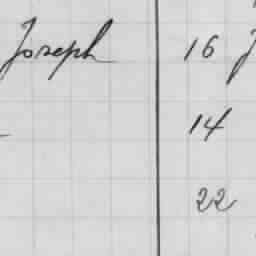 Joseph 16
14
22